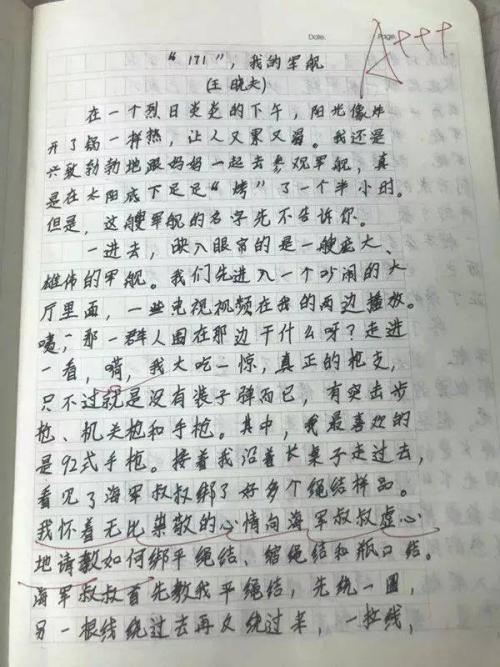 Date.
Page.
A+++
"171",我的军舰
(王晓夫)
在一个烈日炎炎的下午,阳光像炸
开了锅一样热,让人又累又渴。我还是
兴致勃勃地跟妈妈一起去参观军舰,真
是在太阳底下足足"烤"了一个半小时。
但是,这艘军舰的名字先不告诉你。
一进去,映入眼帘的是一艘庞大、
雄伟的军舰。我们先进入一个吵闹的大
厅里面,一些电视视频在我的两边播放。
咦,那一群人围在那边干什么呀?走进
一看,嗬,我大吃一惊,真正的枪支,
只不过就是没有装子弹而已,有突击步
枪、机关枪和手枪。其中,我最喜欢的
是92式手枪。接着我沿着长桌子走过去,
看见了海军叔叔绑了好多个绳结样品。
我怀着无比崇敬的心情向海军叔叔虚心
地请教如何绑平绳结、缩绳结和瓶口结。
海军叔叔首先教我平绳结,先绕一圈,
另一根线绕过去再又绕过来,一拉线,